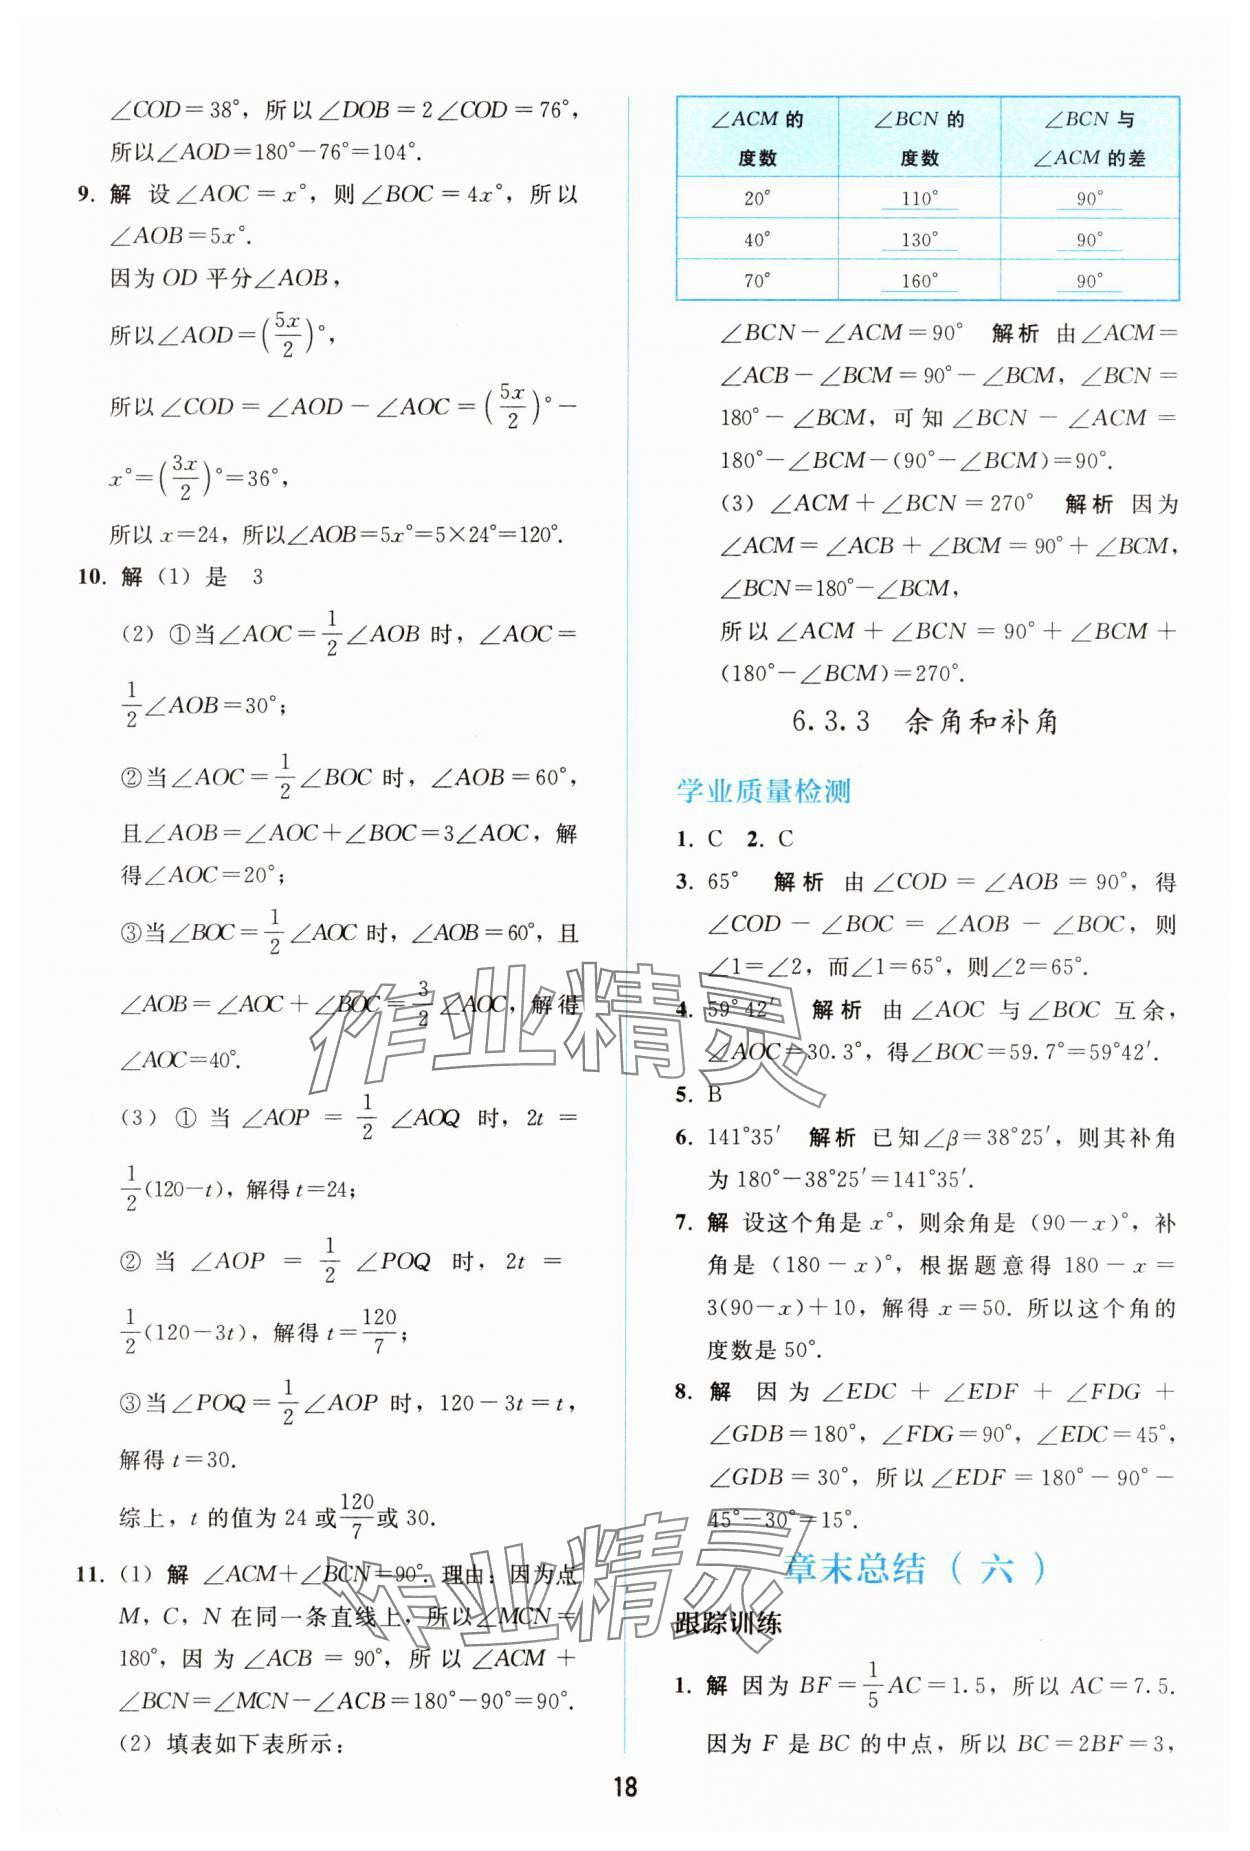 ∠COD=38°，所以∠DOB=2∠COD=76°，
所以∠AOD=180°-76°=104°.
9. 解 设∠AOC=x°，则∠BOC=4x°，所以
∠AOB=5x°.
因为OD平分∠AOB，
所以∠AOD=(5x/2)°，
所以∠COD=∠AOD-∠AOC=(5x/2)°-
x°=(3x/2)°=36°，
所以x=24，所以∠AOB=5x°=5×24°=120°.
10. 解（1）是 3
（2）①当∠AOC=1/2∠AOB时，∠AOC=
1/2∠AOB=30°；
②当∠AOC=1/2∠BOC时，∠AOB=60°，
且∠AOB=∠AOC+∠BOC=3∠AOC，解
得∠AOC=20°；
③当∠BOC=1/2∠AOC时，∠AOB=60°，且
∠AOB=∠AOC+∠BOC=3/2∠AOC，解得
∠AOC=40°.
（3）①当∠AOP=1/2∠AOQ时，2t=
1/2(120-t)，解得t=24；
②当∠AOP=1/2∠POQ时，2t=
1/2(120-3t)，解得t=120/7；
③当∠POQ=1/2∠AOP时，120-3t=t，
解得t=30.
综上，t的值为24或120/7或30.
11.（1）解 ∠ACM+∠BCN=90°.理由：因为点
M，C，N在同一条直线上，所以∠MCN=
180°，因为∠ACB=90°，所以∠ACM+
∠BCN=∠MCN-∠ACB=180°-90°=90°.
（2）填表如下表所示：
∠ACM的度数 ∠BCN的度数 ∠BCN与∠ACM的差
20° 110° 90°
40° 130° 90°
70° 160° 90°
∠BCN-∠ACM=90° 解析 由∠ACM=
∠ACB-∠BCM=90°-∠BCM，∠BCN=
180°-∠BCM，可知∠BCN-∠ACM=
180°-∠BCM-(90°-∠BCM)=90°.
（3）∠ACM+∠BCN=270° 解析 因为
∠ACM=∠ACB+∠BCM=90°+∠BCM，
∠BCN=180°-∠BCM，
所以∠ACM+∠BCN=90°+∠BCM+
(180°-∠BCM)=270°.
6.3.3 余角和补角
学业质量检测
1. C 2. C
3. 65° 解析 由∠COD=∠AOB=90°，得
∠COD-∠BOC=∠AOB-∠BOC，则
∠1=∠2，而∠1=65°，则∠2=65°.
4. 59°42′ 解析 由∠AOC与∠BOC互余，
∠AOC=30.3°，得∠BOC=59.7°=59°42′.
5. B
6. 141°35′ 解析 已知∠β=38°25′，则其补角
为180°-38°25′=141°35′.
7. 解 设这个角是x°，则余角是(90-x)°，补
角是(180-x)°，根据题意得180-x=
3(90-x)+10，解得x=50.所以这个角的
度数是50°.
8. 解 因为∠EDC+∠EDF+∠FDG+
∠GDB=180°，∠FDG=90°，∠EDC=45°，
∠GDB=30°，所以∠EDF=180°-90°-
45°-30°=15°.
章末总结（六）
跟踪训练
1. 解 因为BF=1/5AC=1.5，所以AC=7.5.
因为F是BC的中点，所以BC=2BF=3，
18
作业精灵
作业精灵